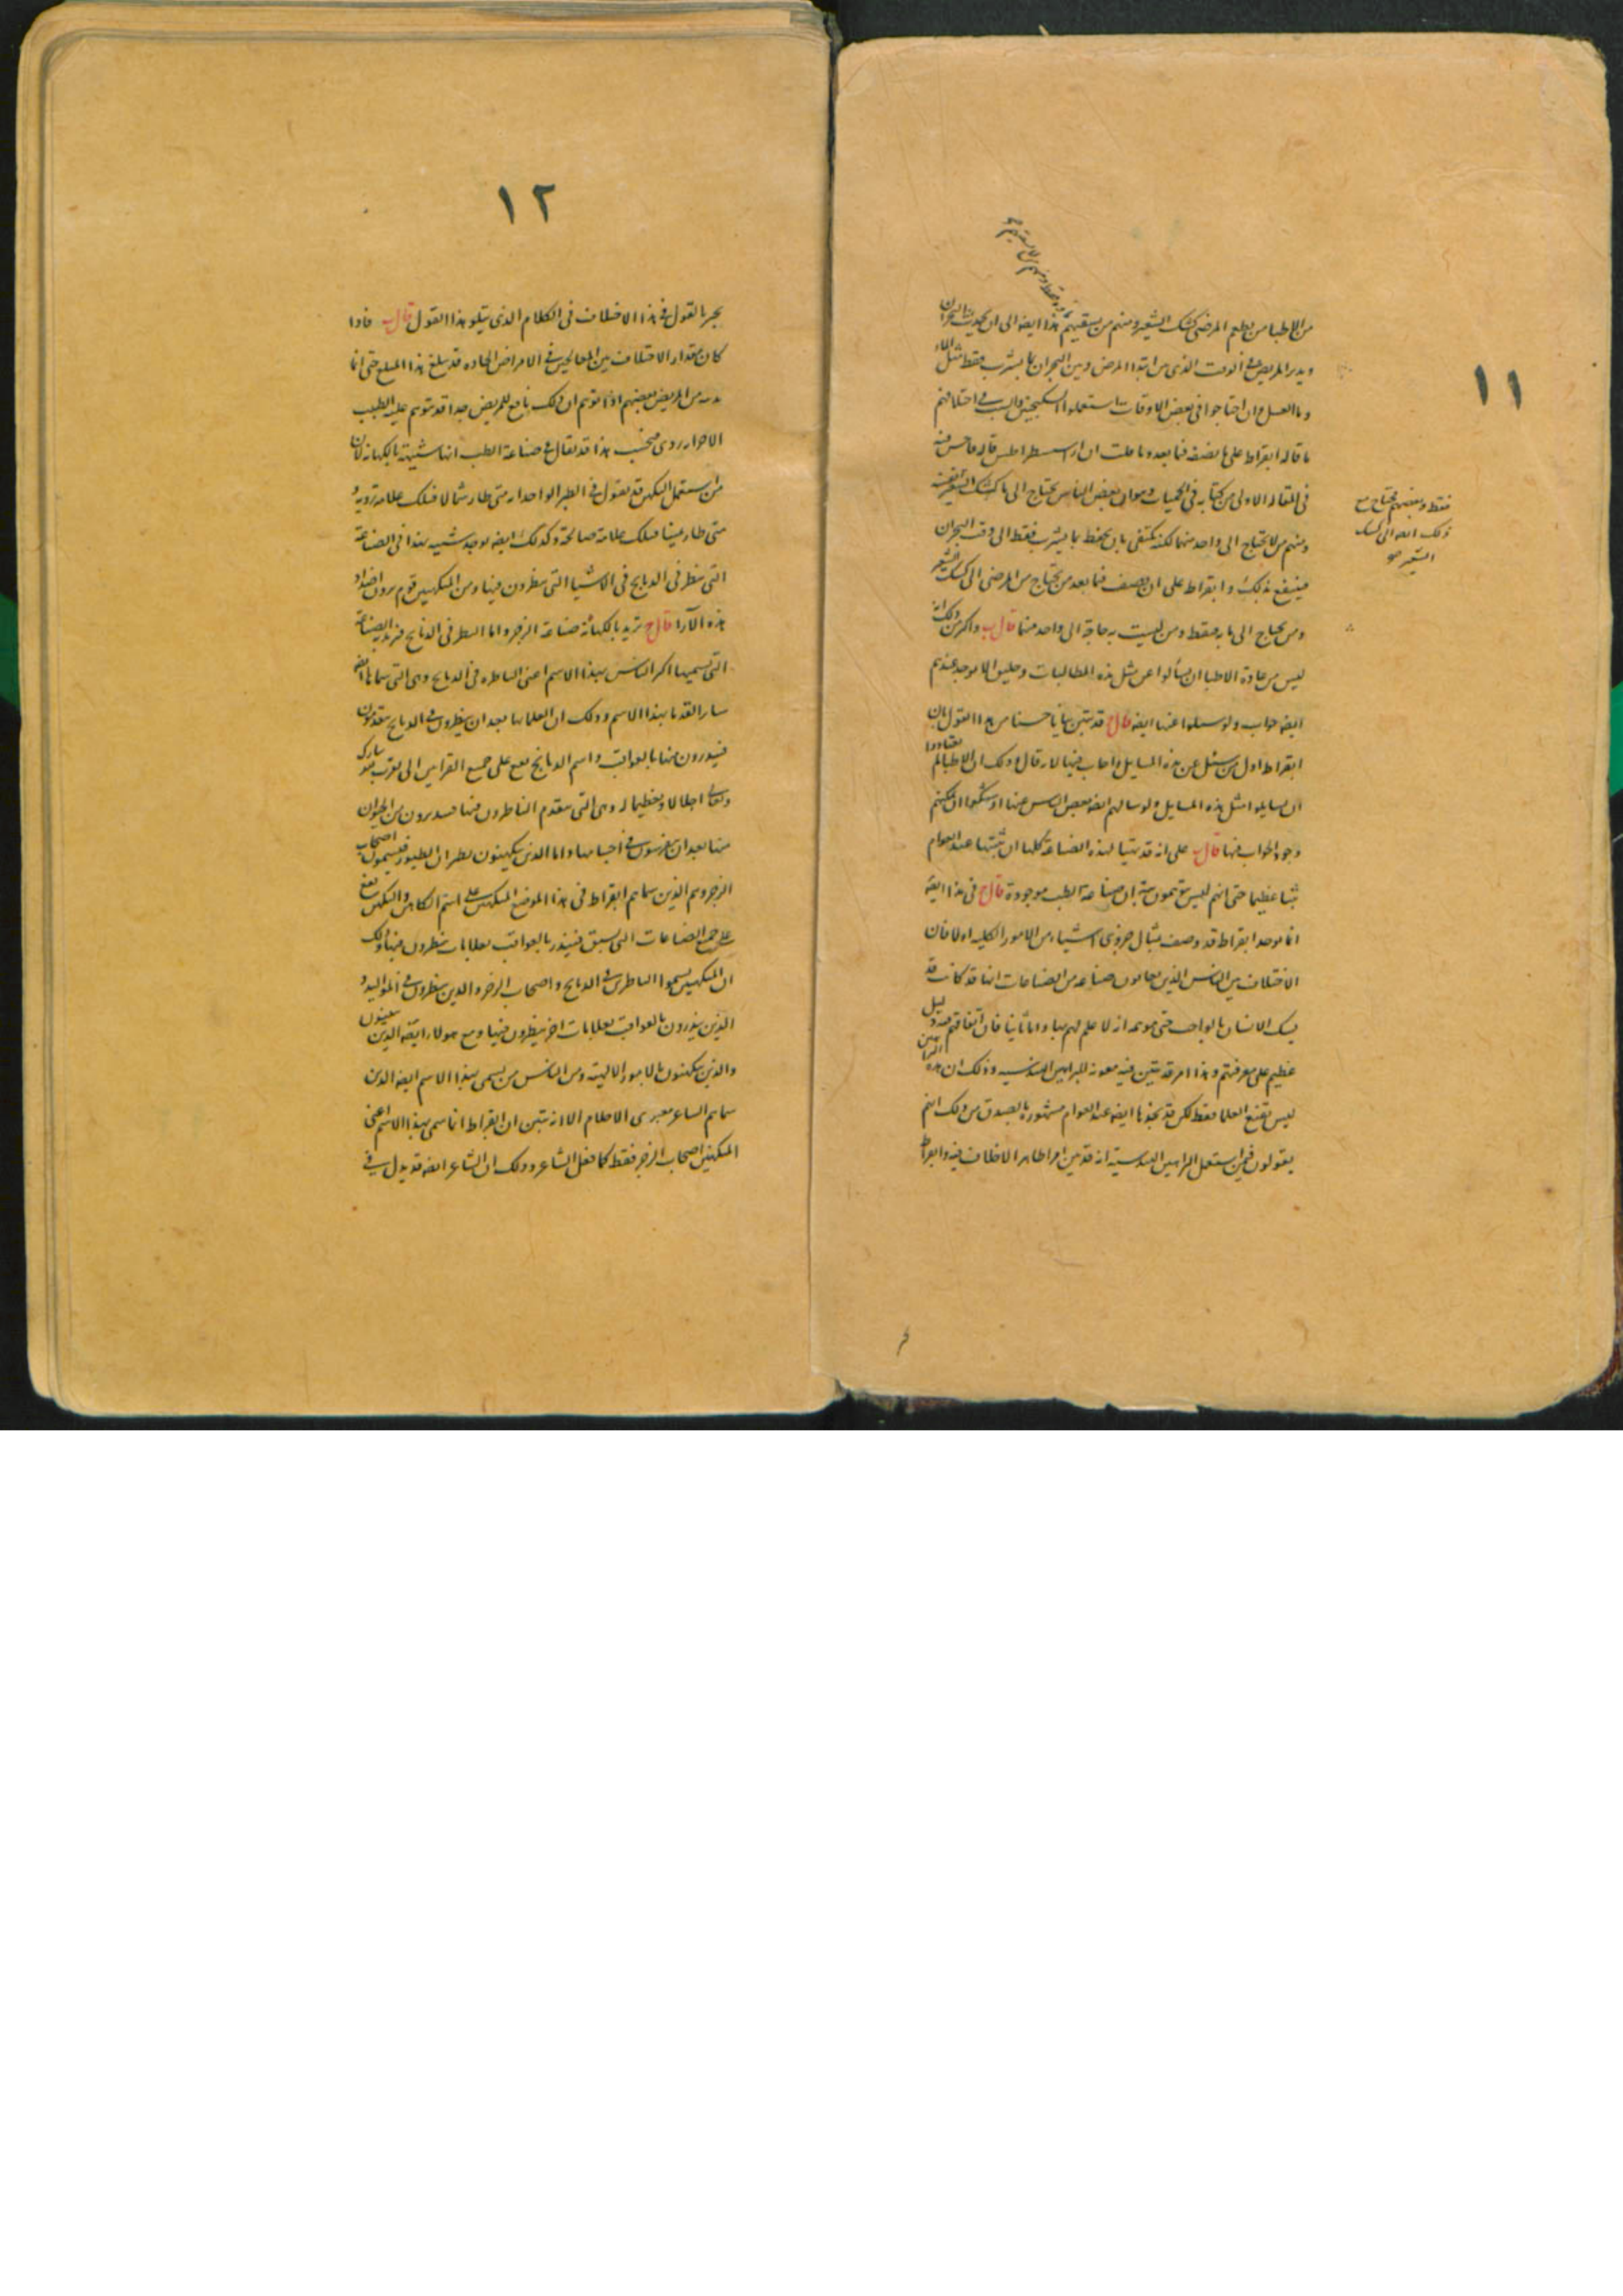 ١١
من الاطبا من يطعم المرضى كشك الشعير ومنهم من يسقيهم هذا ايضه الى ان يحدث البحران
ويدبر المريض فى الوقت الذى من ابتدا المرض وبين البحران بما يشرب فقط مثل الماء
وما العسل وان احتاجوا فى بعض الاوقات استعملوا السكنجبين والسبب فى اختلافهم
ما قاله ابقراط على ما يصفه فيما بعد وما ملت ان اراسسطراطس قاله
فى المقاله الاولى من كتابه فى الحميات وهو ان بعض الناس يحتاج الى ماء كشك الشعير
ومنهم من لا يحتاج الى واحد منهما لكنه يكتفى بان يحفظ بما يشرب فقط الى وقت البحران
فينتفع بذلك وابقراط على ان يصف فيما بعد من يحتاج من المرضى الى كشك الشعير
ومن يحتاج الى مايه فقط ومن ليست به حاجة الى واحد منهما قال ب واكثر من ذلك انه
ليس من عادة الاطبا ان يسألوا عن مثل هذه المطالبات وخليق الا يوجد عندهم
ايضه جواب ولو سيلوا عنها ايضه قال ج قد تبين بيانا حسنا من هذا القول بان
ابقراط اول من سئل عن هذه المسايل واجاب فيها لانه قال وذلك ان الاطبا لم يعتادوا
ان يسايلوا مثل هذه المسايل ولو سالهم ايضه بعض الناس عنها اوشكوا ان لا يمكنهم
وجود الجواب فيها قال ب على انه قد يتهيا لهذه الصناعة كلها ان ثلبتها عند العوام
ثلبا عظيما حتى انهم ليس يتوهمون بته ان صناعة الطب موجودة قال ج فى هذا ايضه
انما يوجد ابقراط قد وصف بمثال جزوى اشياء من الامور الكليه اولا فان
الاختلاف بين الناس الذين يعانون صناعه من الصناعات انها قد كانت قد
يشك الانسان بالواجب حتى يوهمه انه لا علم لهم بها واما ثانيا فان اتفاقهم فيه دليل
عظيم على معرفتهم وهذا امر قد تبين فيه معونه البراهين الهندسيه وذلك ان هذه البراهين
ليس يقنع العلما فقط لكن قد نجدها ايضه عند العوام مشهوره بالصدق من ذلك انهم
يقولون فيمن استعمل البراهين الهندسية انه قد بين امرا ظاهرا لا خلاف فيه وابقراط
فقط وبعضهم يحتاج مع
ذلك ايضه الى كشك
الشعير صح
١٢
يجر بالقول فى هذا الاختلاف فى الكلام الذى يتلو هذا القول قال ب فاذا
كان مقدار الاختلاف بين المعالجين فى الامراض الحاده قد يبلغ هذا المبلغ حتى انما
يدبر من المريض بعضهم اذا توهم ان ذلك نافع للمريض جدا قد يتوهم عليه الطبيب
الاخر انه ردى فبحسب هذا قد يقال فى صناعة الطب انها شبيهة بالكهانة لان
من يستعمل التكهن قد يقول فى الطير الواحد انه متى طار شمالا فتلك علامة رديه و
متى طار يمينا فتلك علامة صالحة وكذلك ايضه يوجد شبيه بهذا فى الصناعة
التى تنظر فى الذبايح فى الاشيا التى ينظرون فيها ومن المتكهنين قوم يرون اضداد
هذه الآراء قال ج يريد بالكهانة صناعة الزجر واما النظر فى الذبايح فيريد به الصناعة
التى يسميها اكثر الناس بهذا الاسم اعنى الناظره فى الذبايح وهى التى سماها ايضه
ساير القدما بهذا الاسم وذلك ان العلما بها بعد ان ينظروا فى الذبايح يتقدمون
فينذرون منها بالعواقب واسم الذبايح يقع على جميع القرابين التى تقرب لله تبارك
وتعالى اجلالا وتعظيما له وهى التى يتقدم الناظرون فيها فينذرون من الحيوان
منها بعد ان يتفرسون فى احشايها واما الذين يتكهنون بطيران الطيور فيسمون اصحاب
الزجر وهم الذين سماهم ابقراط فى هذا الموضع المتكهنين على ان اسم الكاهن والتكهن يقع
على جميع الصناعات التى تسبق فينذر بالعواقب بعلامات ينظرون فيها وذلك
ان المتكهنين يسموا الناظرين فى الذبايح واصحاب الزجر والذين ينظرون فى المواليد و
الذين ينذرون بالعواقب بعلامات اخر ينظرون فيها ومع هولاء ايضه الذين
والذين يتكهنون بالامور الالهية ومن الناس من يسمى بهذا الاسم ايضه الذين
سماهم الشاعر معبرى الاحلام الا انه يتبين ان ابقراط انما سمى بهذا الاسم اعنى
المتكهنين اصحاب الزجر فقط كما فعل الشاعر وذلك ان الشاعر ايضه قد يدل فى